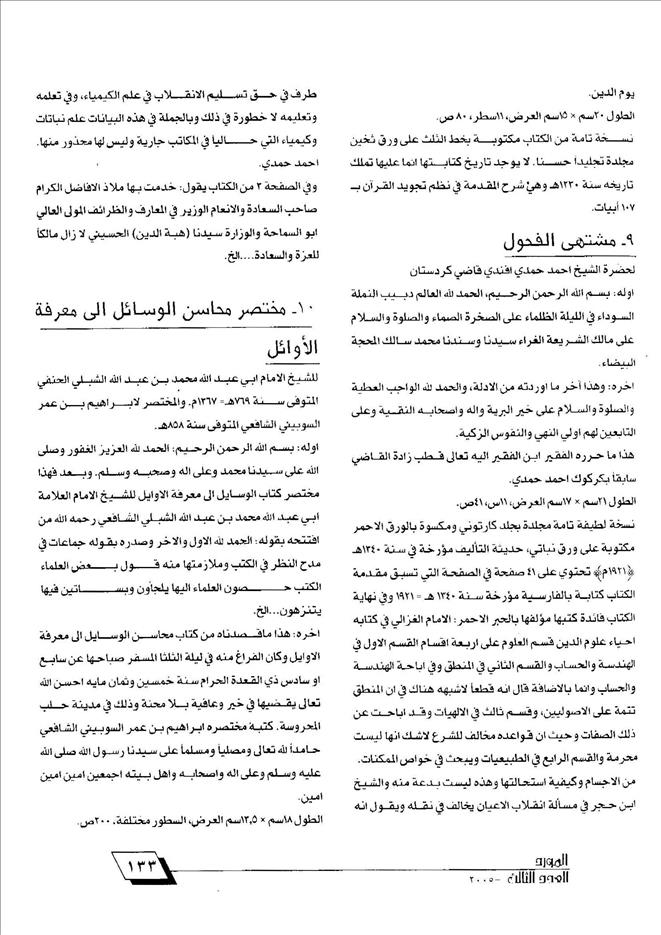 يوم الدين.
الطول ٢٠سم × ١٥سم العرض، ١١سطر، ٨٠ ص.
نسخة تامة من الكتاب مكتوبة بخط الثلث على ورق ثخين
مجلدة تجليداً حسنا. لا يوجد تاريخ كتابتها انما عليها تملك
تاريخه سنة ١٢٣٠هـ وهي شرح المقدمة في نظم تجويد القرآن بـ
١٠٧ أبيات.
٩ـ مشتهى الفحول
لحضرة الشيخ احمد حمدي افندي قاضي كردستان
اوله: بسم الله الرحمن الرحيم، الحمد لله العالم دبيب النملة
السوداء في الليلة الظلماء على الصخرة الصماء والصلوة والسلام
على مالك الشريعة الغراء سيدنا وسندنا محمد سالك المحجة
البيضاء.
اخره: وهذا آخر ما اوردته من الادلة، والحمد لله الواجب العطية
والصلوة والسلام على خير البرية واله واصحابه النقية وعلى
التابعين لهم اولي النهي والنفوس الزكية.
هذا ما حرره الفقير ابن الفقير اليه تعالى قطب زادة القاضي
سابقاً بكركوك احمد حمدي.
الطول ٢١سم × ١٧سم العرض، ١١س، ٤١ص.
نسخة لطيفة تامة مجلدة بجلد كارتوني ومكسوة بالورق الاحمر
مكتوبة على ورق نباتي، حديثة التأليف مؤرخة في سنة ١٣٤٠هـ
﴿١٩٢١م﴾ تحتوي على ٤١ صفحة في الصفحة التي تسبق مقدمة
الكتاب كتابة بالفارسية مؤرخة سنة ١٣٤٠ هـ = ١٩٢١ وفي نهاية
الكتاب فائدة كتبها مؤلفها بالحبر الاحمر: الامام الغزالي في كتابه
احياء علوم الدين قسم العلوم على اربعة اقسام القسم الاول في
الهندسة والحساب والقسم الثاني في المنطق وفي اباحة الهندسة
والحساب وانما بالاضافة قال انه قطعاً لاشبهه هناك في ان المنطق
تتمة على الاصوليين، وقسم ثالث في الالهيات وقد اباحت عن
ذلك الصفات وحيث ان قواعده مخالف للشرع لاشك انها ليست
محرمة والقسم الرابع في الطبيعيات ويبحث في خواص الممكنات.
من الاجسام وكيفية استحالتها وهذه ليست بدعة منه والشيخ
ابن حجر في مسألة انقلاب الاعيان يخالف في نقله ويقول انه
طرف في حق تسليم الانقلاب في علم الكيمياء، وفي تعلمه
وتعليمه لا خطورة في ذلك وبالجملة في هذه البيانات علم نباتات
وكيمياء التي حالياً في المكاتب جارية وليس لها محذور منها.
احمد حمدي.
وفي الصفحة ٣ من الكتاب يقول: خدمت بها ملاذ الافاضل الكرام
صاحب السعادة والانعام الوزير في المعارف والظرائف المولى العالي
ابو السماحة والوزارة سيدنا (هبة الدين) الحسيني لا زال مالكاً
للعزة والسعادة....الخ.
١٠ـ مختصر محاسن الوسائل الى معرفة
الأوائل
للشيخ الامام ابي عبد الله محمد بن عبد الله الشبلي الحنفي
المتوفى سنة ٧٦٩هـ= ١٣٦٧م. والمختصر لابراهيم بن عمر
السوبيني الشافعي المتوفى سنة ٨٥٨هـ.
اوله: بسم الله الرحمن الرحيم: الحمد لله العزيز الغفور وصلى
الله على سيدنا محمد وعلى اله وصحبه وسلم. وبعد فهذا
مختصر كتاب الوسايل الى معرفة الاوايل للشيخ الامام العلامة
ابي عبد الله محمد بن عبد الله الشبلي الشافعي رحمه الله من
افتتحه بقوله: الحمد لله الاول والاخر وصدره بقوله جماعات في
مدح النظر في الكتب وملازمتها منه قول بعض العلماء
الكتب حصون العلماء اليها يلجأون وبساتين فيها
يتنزهون...الخ.
اخره: هذا ماقصدناه من كتاب محاسن الوسايل الى معرفة
الاوايل وكان الفراغ منه في ليلة الثلثا المسفر صباحها عن سابع
او سادس ذي القعدة الحرام سنة خمسين وثمان مايه احسن الله
تعالى يقضيها في خير وعافية بلا محنة وذلك في مدينة حلب
المحروسة. كتبة مختصره ابراهيم بن عمر السوبيني الشافعي
حامداً لله تعالى ومصلياً ومسلماً على سيدنا رسول الله صلى الله
عليه وسلم وعلى اله واصحابه واهل بيته اجمعين امين امين
امين.
الطول ١٨سم × ١٣,٥سم العرض، السطور مختلفة، ٢٠٠ص.
المورد
العدد الثالث - ٢٠٠٥
١٣٣